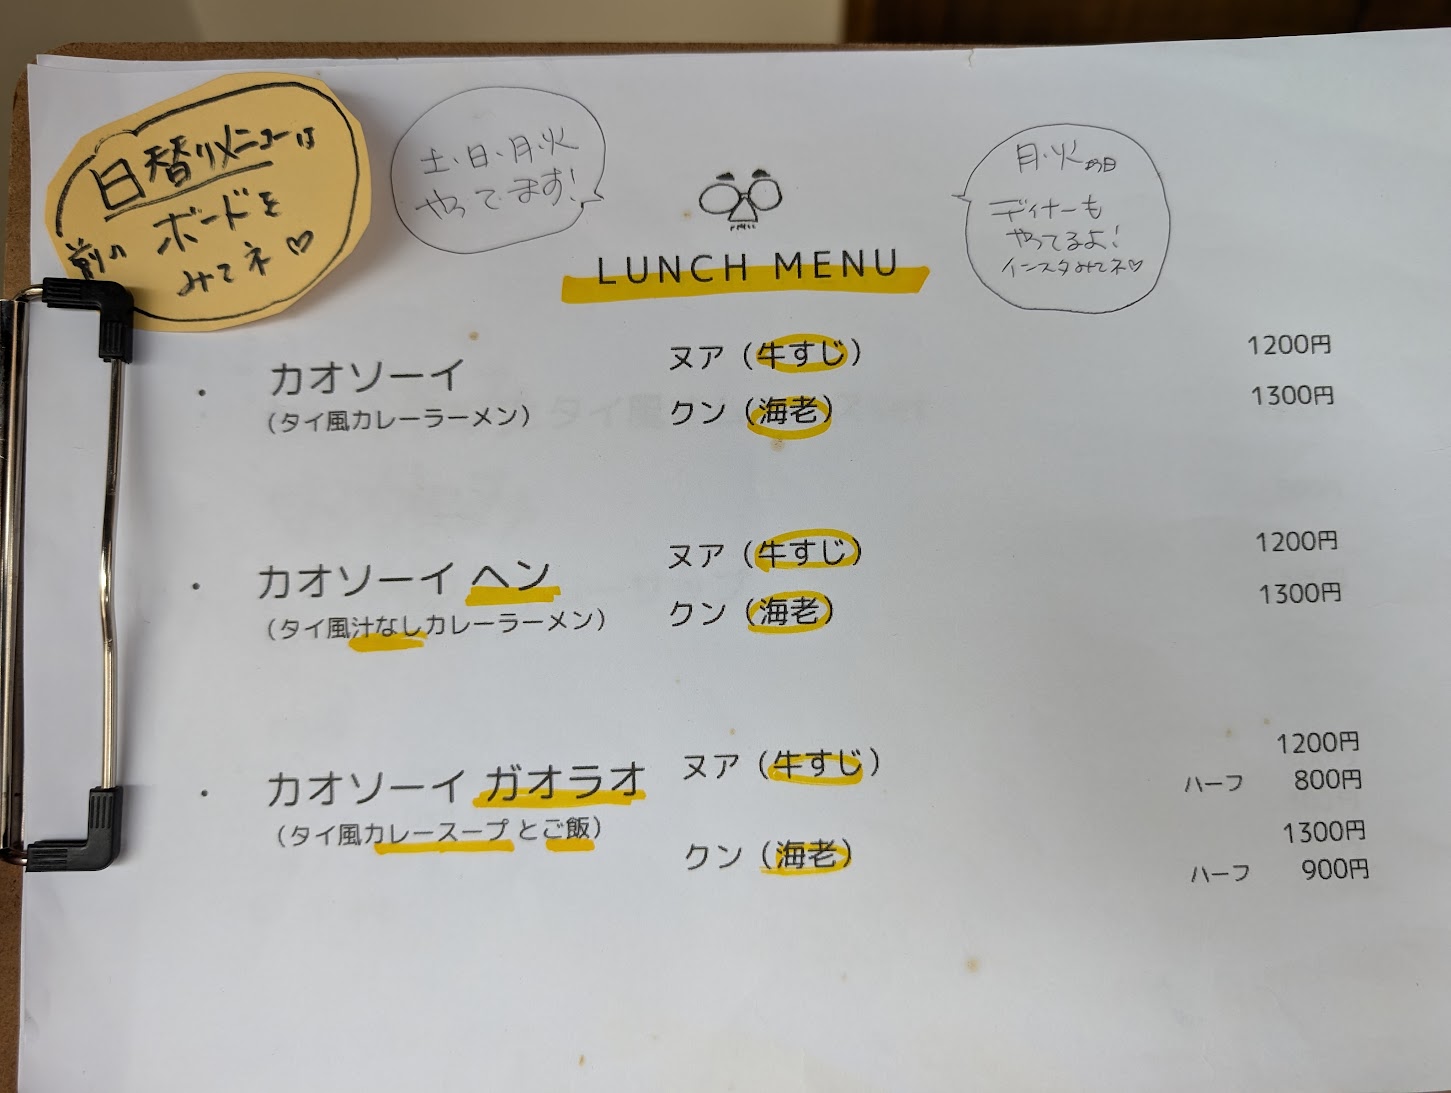 日替りメニューは
前の ボードを
みてネ♡
土・日・月・火
やってます!
月・火のみ
ディナーも
やってるよ!
インスタみてネ♡
LUNCH MENU
・ カオソーイ
(タイ風カレーラーメン)
ヌア (牛すじ) 1200円
クン (海老) 1300円
・ カオソーイ ヘン
(タイ風汁なしカレーラーメン)
ヌア (牛すじ) 1200円
クン (海老) 1300円
・ カオソーイ ガオラオ
(タイ風カレースープ とご飯)
ヌア (牛すじ) 1200円
ハーフ 800円
クン (海老) 1300円
ハーフ 900円